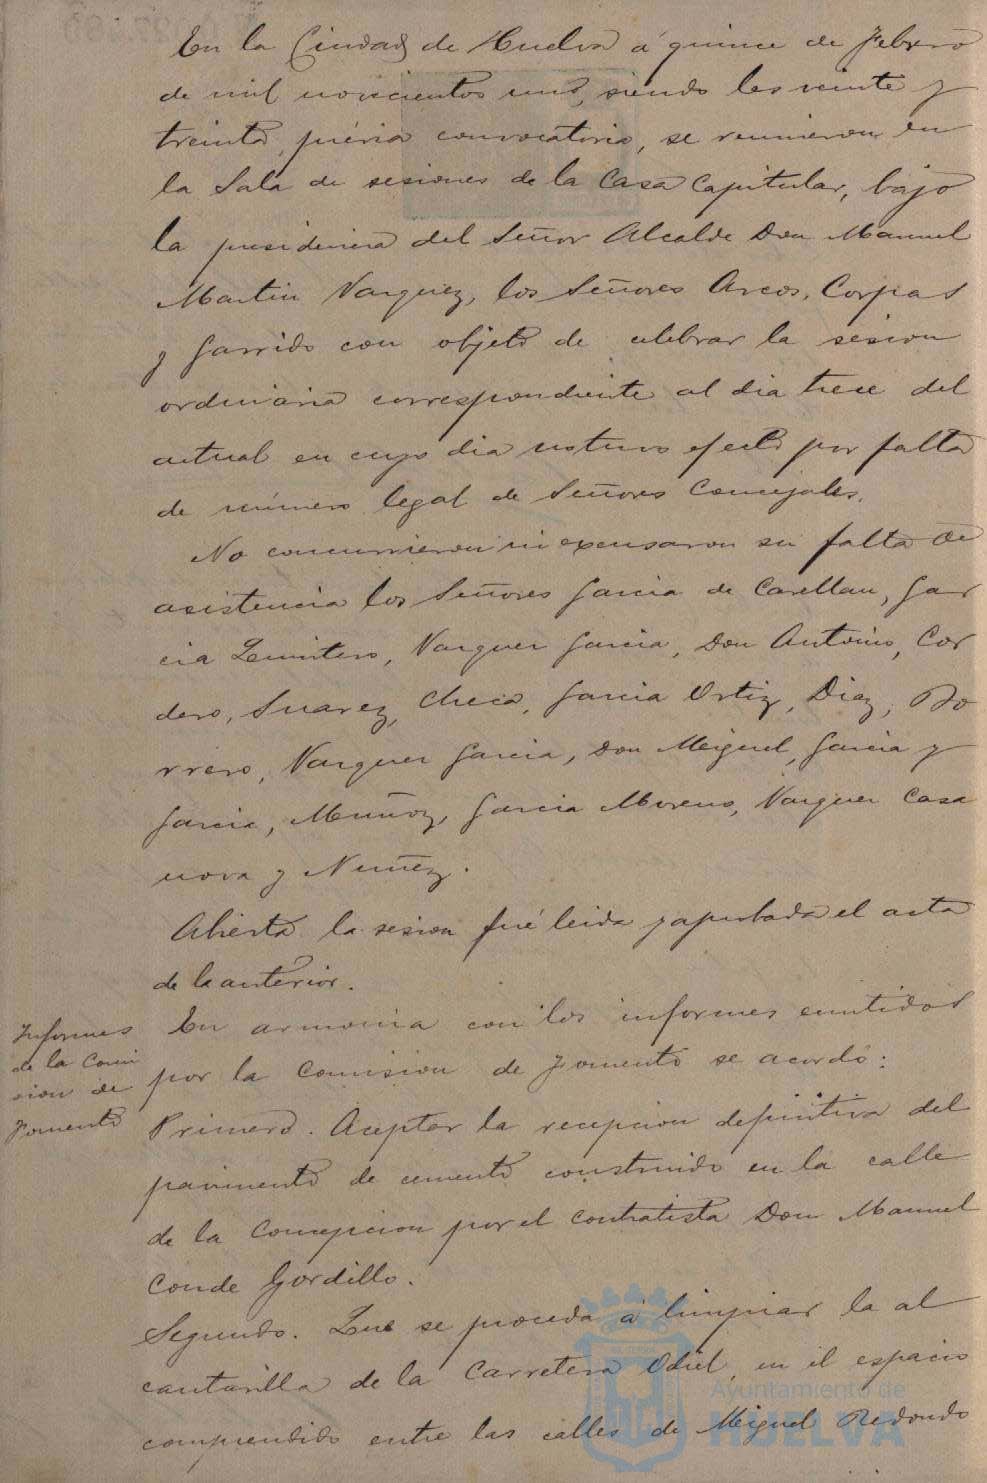 En la Ciudad de Huelva á quince de Febrero
de mil novecientos uno, siendo las veinte y
treinta, prévia convocatoria, se reunieron en
la Sala de sesiones de la Casa Capitular, bajo
la presidencia del Señor Alcalde Don Manuel
Martin Vazquez, los Señores Arcos, Corpas
y Garrido con objeto de celebrar la sesion
ordinaria correspondiente al dia trece del
actual en cuyo dia no tuvo efecto por falta
de número legal de Señores Concejales.
No concurrieron ni excusaron su falta de
asistencia los Señores Garcia de Carellan, Gar
cia Vazquez Garcia, Don Antonio, Cor
dero, Suarez, Checa, Garcia Ortiz, Diaz, Bo
rrero, Vazquez Garcia, Don Miguel, Garcia y
Garcia, Muñoz, Garcia Moreno, Vazquez Casa
nova y Nuñez.
Abierta la sesion fué leida y aprobada el acta
de la anterior.
Informes
de la Comi
sion de
Fomento
En armonia con los informes emitidos
por la Comision de Fomento se acordó:
Primero. Aceptar la recepcion definitiva del
pavimento de cemento construido en la calle
de la Concepcion por el contratista Don Manuel
Conde Gordillo.
Segundo. Que se proceda á limpiar la al
cantarilla de la Carretera Odiel, en el espacio
comprendido entre las calles de Miguel Redondo
Ayuntamiento de
HUELVA